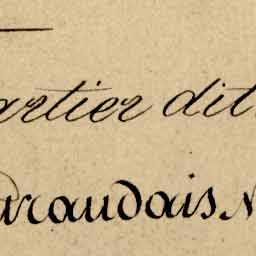 artier dit
araudais N